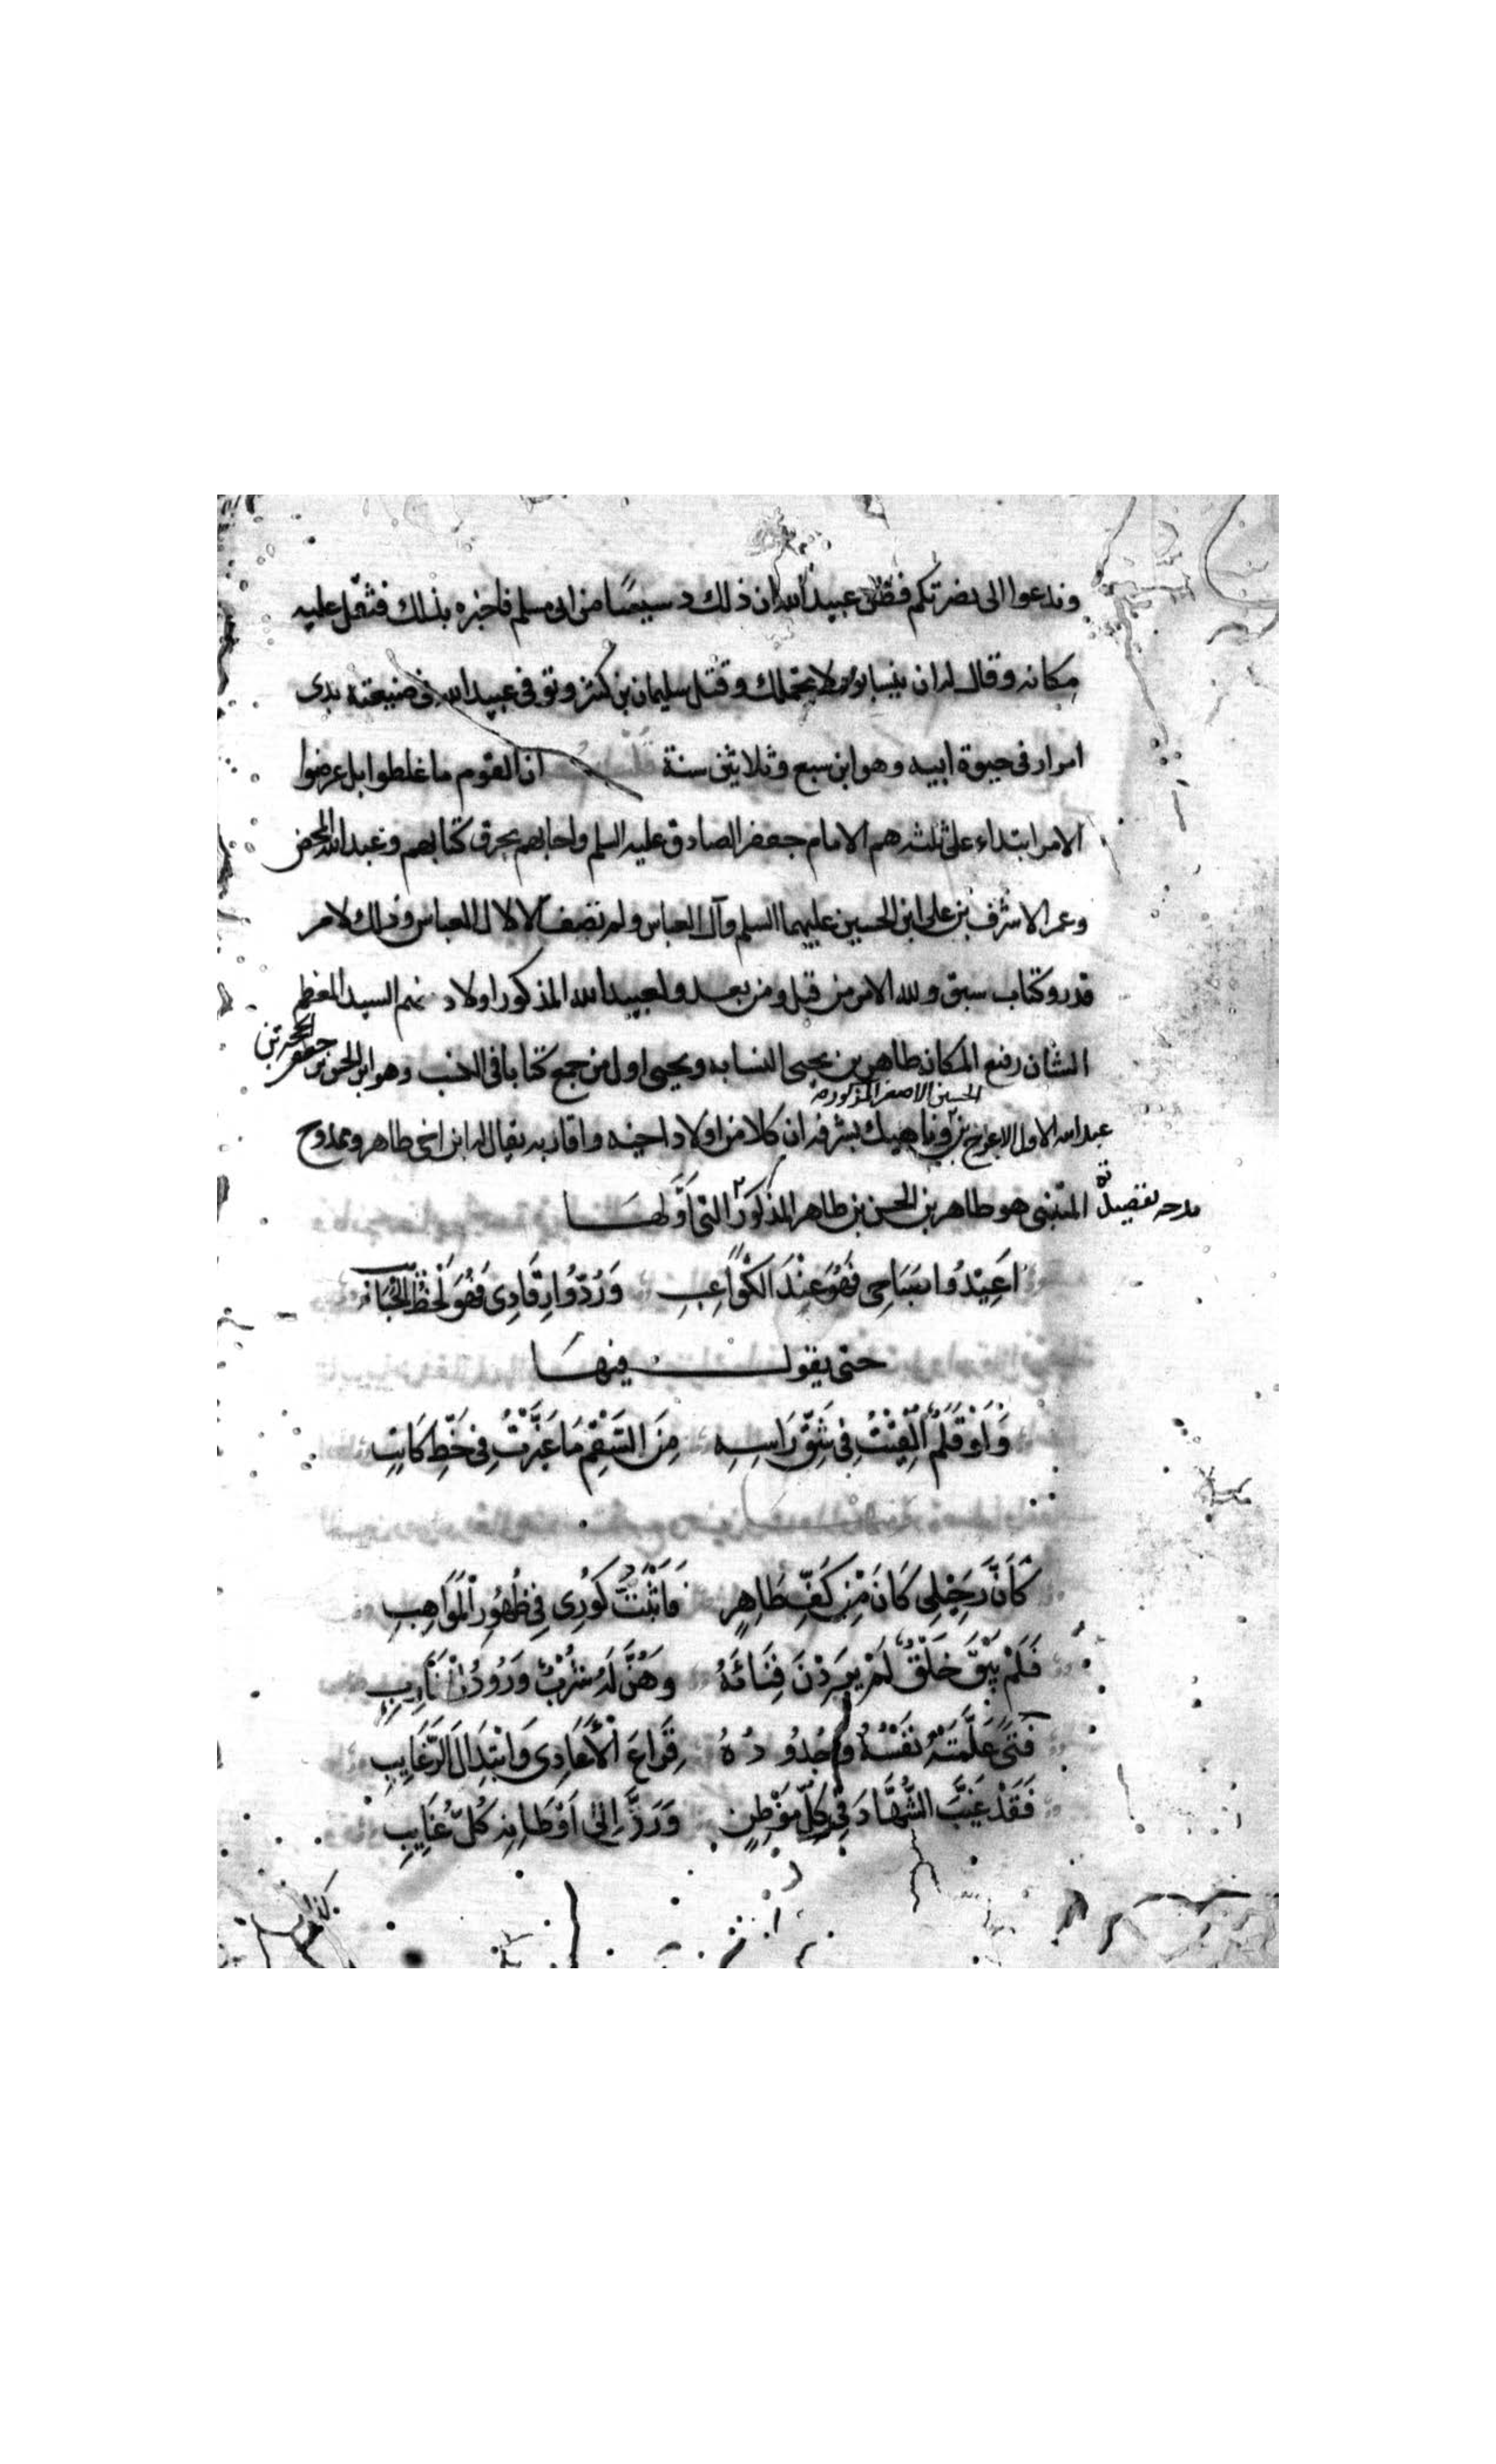 وندعوا الى نصرتكم فظن عبيد الله ان ذلك دسيسا من ابى مسلم فاخبره بذلك فثقل عليه
مكانه وقال له ان نيسابور لا تحتملك وقتل سليمان بن كثير وتوفى عبيد الله فى ضيعته بذى
امران فى حيوة ابيه وهو ابن سبع وثلاثين سنة قلت ان القوم ما غلطوا بل عرضوا
الامر ابتداء على ثلثة هم الامام جعفر الصادق عليه السلم واجابهم بحرق كتابهم وعبد الله المحض
وعمر الاشرف بن على ابن الحسين عليهما السلم وآل العباس ولم تصف الا لآل العباس وذلك لامر
قدر وكتاب سبق ولله الامر من قبل ومن بعد ولعبيد الله المذكور اولاد منهم السيد المعظم
الشان رفيع المكان طاهر بن يحيى النسابه ويحيى اول من جمع كتابا فى النسب وهو ابن الحسن بن جعفر الحجة بن
عبد الله الاول الاعرج بن الحسين الاصغر المذكور وناهيك بشرفه ان كلا من اولاد اخيه واقاربه يقال له ابن اخى طاهر وممدوح
المتنبى هو طاهر بن الحسن بن طاهر المذكور مدحه بقصيدته التى اولها
اَعِيْدُوا صَبَاحِى فَهْوَ عِنْدَ الْكَوَاعِبِ وَرُدُّوا رِقَادِى فَهُوَ لَحْظُ الْحَبَائِب
حتى يقول فيها
وَلَوْ قَلَمٌ اُلْقِيْتُ فِى شَقِّ رَاسِهِ مِنَ السَّقْمِ مَا غَيَّرْتُ فِى خَطِّ كَاتِبِ
كَأَنَّ رَحِيْلِى كَانَ مِنْ كَفِّ طَاهِرٍ فَاَثْبَتَ كُوْرِى فِى ظُهُوْرِ الْمَوَاهِبِ
فَلَمْ يَبْقَ خَلْقٌ لَمْ يَرِدْنَ فِنَائَهُ وَهُنَّ لَهُ شُرْبٌ وَرُوْدُ الْمَشَارِبِ
فَتًى عَلَّمَتْهُ نَفْسُهُ وَجُدُودُهُ قِرَاعَ الْأَعَادِى وَابْتِذَالَ الرَّغَايِبِ
فَقَدْ غَيَّبَ الشُّهَّادَ عَنْ كُلِّ مَوْطِنٍ وَرَدَّ اِلَى اَوْطَانِهِ كُلَّ غَايِبِ